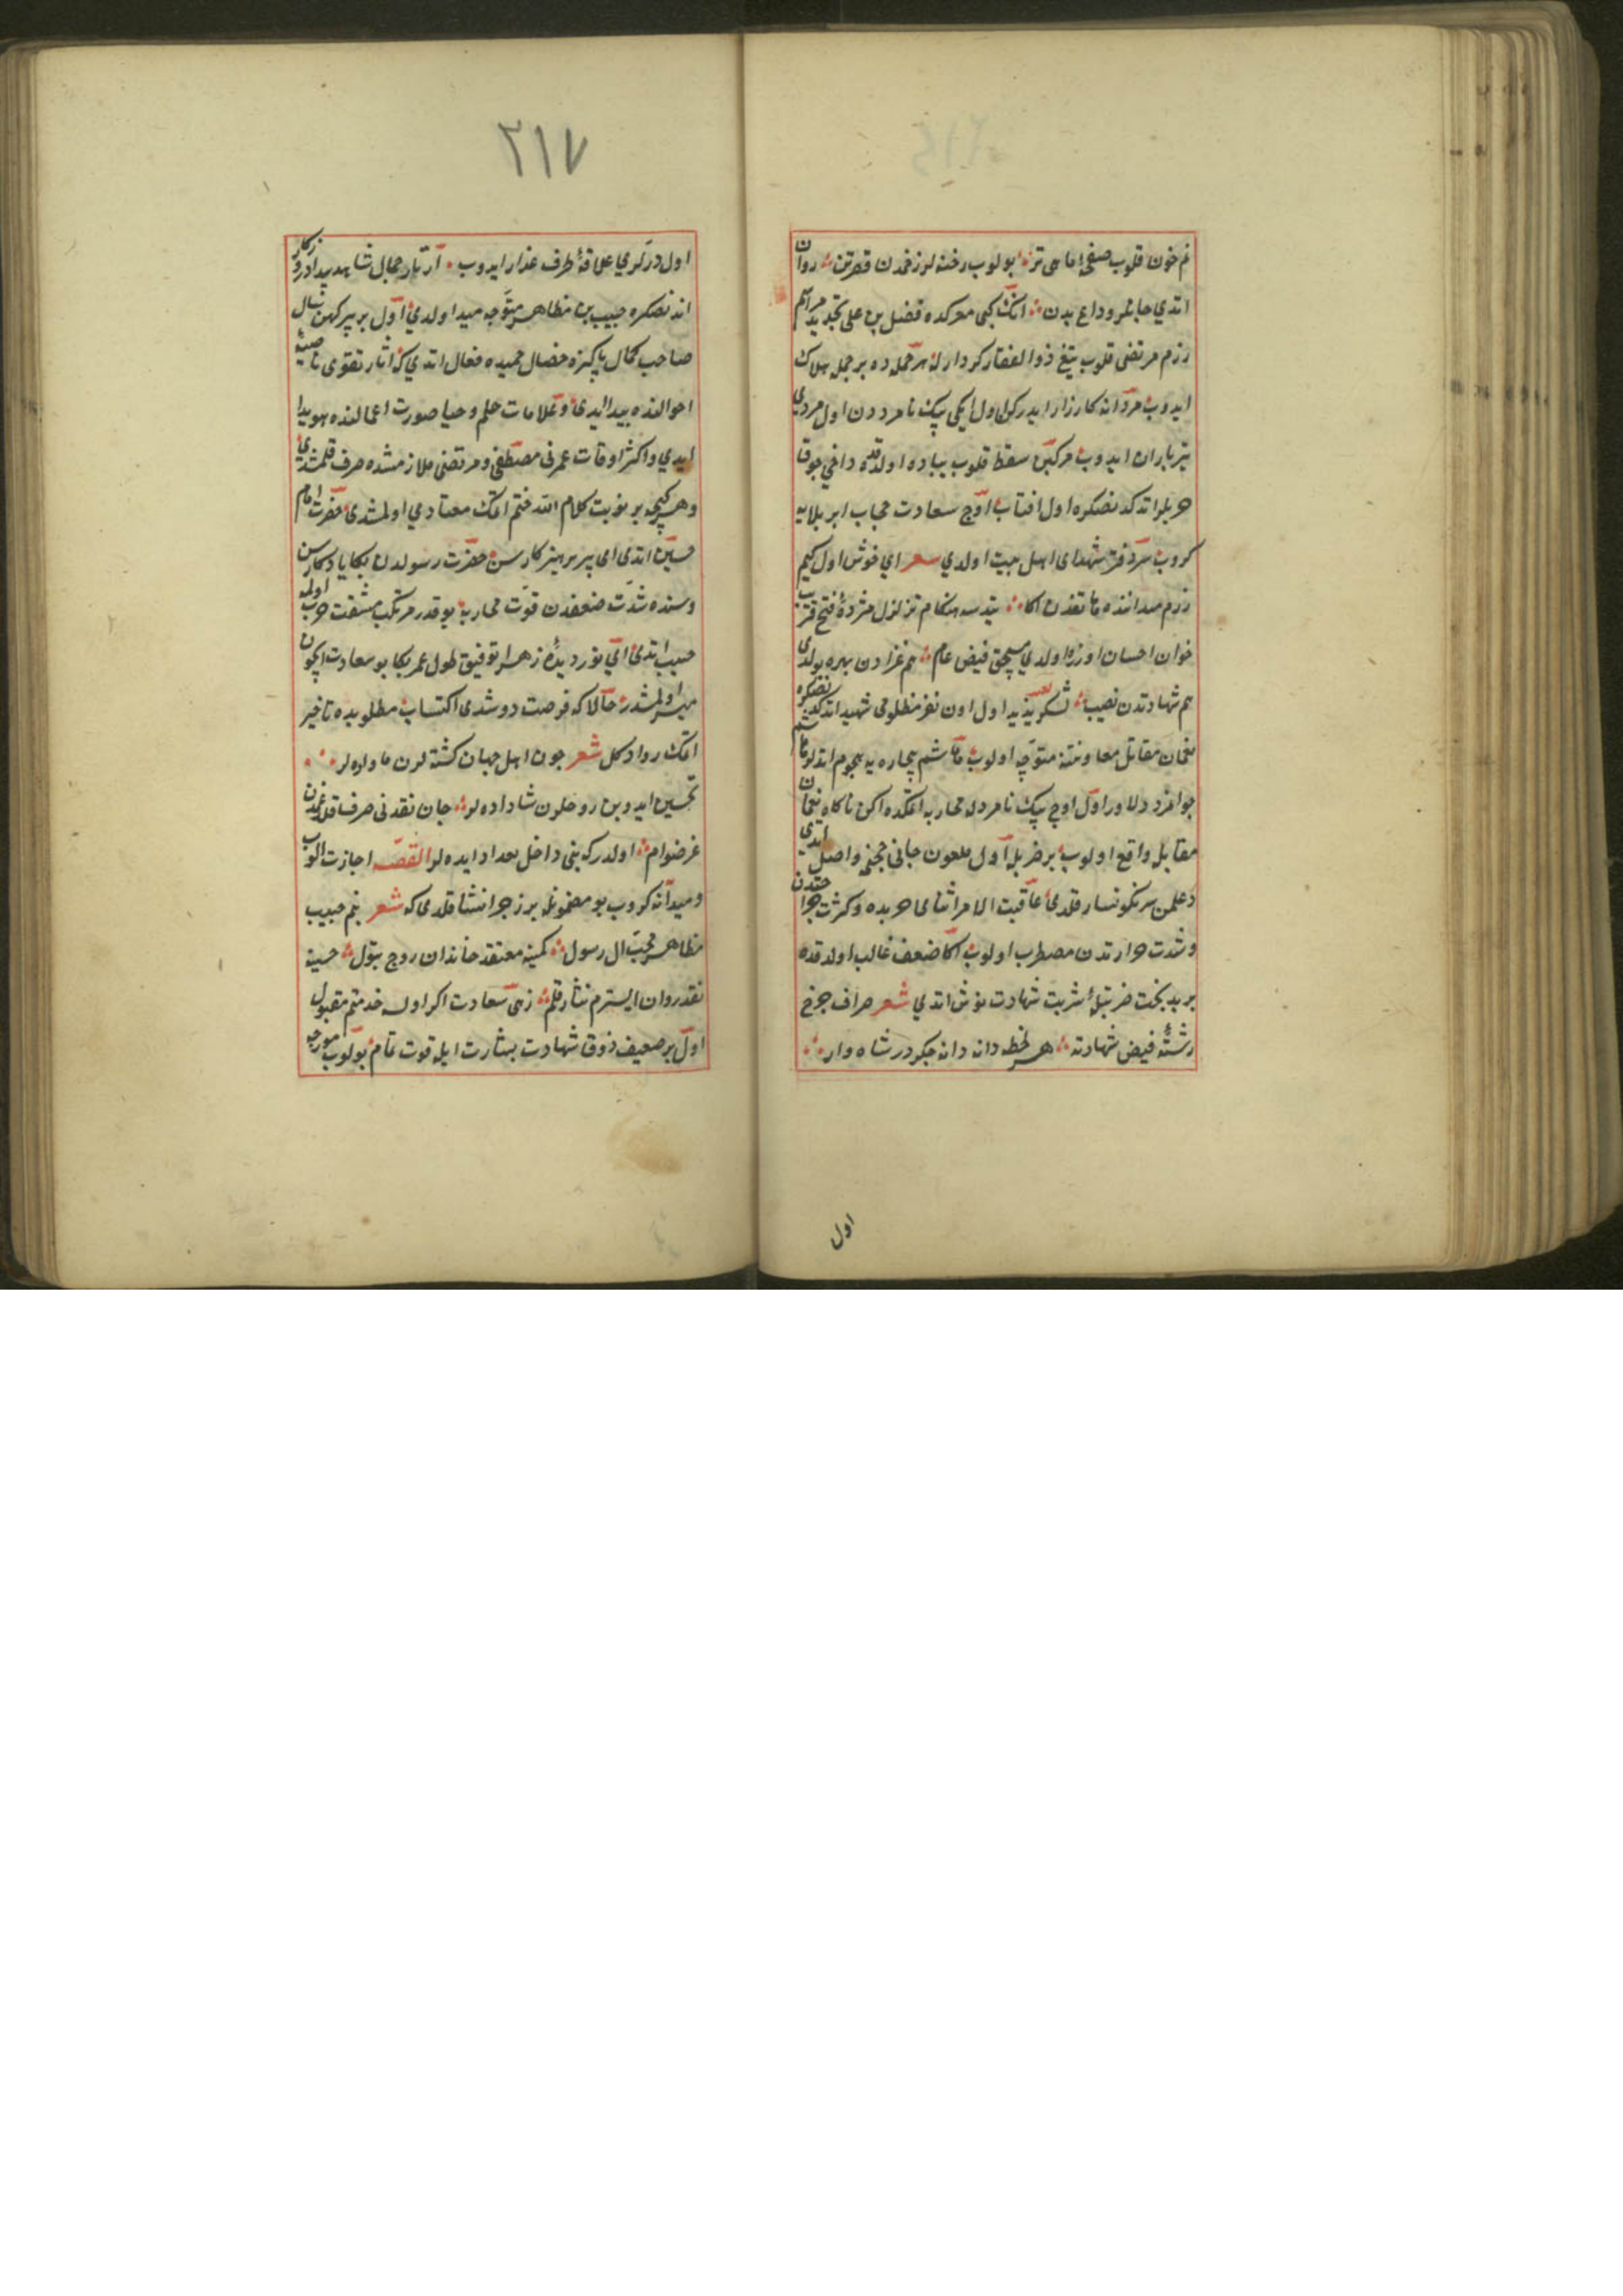 غم خون قلوب صفحهٔ ماهی تز بولوب رخنه لر زخمدن قصرتن روان
اتدی جانلر وداع بدن انک کبی معرکده فضل بن علی تجدید مراسم
رزم مرتضی قلوب تیغ ذوالفقار کردار له هر حمله ده بر جمله هلاک
ایدوب مردانه کارزار ایدرکن اول ایکی بیک نامرددن اول مردی
تیرباران ایدوب مرکبن سقط قلوب پیاده اولدقده داخی چوق
حربلر اتدکدنصکره اول افتاب اوج سعادت حجاب ابر بلایه
کروب سردفتر شهدای اهل بیت اولدی شعر ای خوش اول کیم
رزم میداننده هاتفدن اکا یتدسه هنکام تزلزل مژدهٔ فتح قریب
خوان احسان اوزره اولدی مستحق فیض عام هم غزادن بهره بولدی
هم شهادتدن نصیب لشکر یزید اول اون نفر مظلومی شهید اتدکدنصکره
نعمان مقاتل معاونتنه متوجه اولوب هاشم بیچاره یه هجوم اتدلر هاشم
جوانمرد دلاور اول اوچ بیک نامردله محاربه اتمکده اکن ناکاه نعمان
مقابل واقع اولوب بر ضربله اول ملعون جانی جهنمه واصل ایدی
و علمن سرنکونسار قلدی عاقبت الامر اثنای حربده و کثرت جراحتدن
و شدت حرارتدن مضطرب اولوب اکا ضعف غالب اولدقده
بر بدبخت ضربتله شربت شهادت نوش اتدی شعر صراف چرخ
رشتهٔ فیض شهادته هر لحظه دانه دانه چکر در شاهوار
اول
٢١٧
اول درلری علاقهٔ طرف عذار ایدوب ارتیرر جمال شاهد بیداد روزکار
اندنصکره حبیب بن مظاهر متوجه میدا اولدی اول بر پیر کهن سال
صاحب کمال پاکیزه خصال حمیده فعال اتدی که اثار تقوی ناصیهٔ
احوالنده پیدا ایدی و علامات حلم و حیا صورت اعمالنده هویدا
ایدی و اکثر اوقات عمرنی مصطفی و مرتضی ملازمتنده صرف قلمشدی
و هر کیجه بر نوبت کلام الله ختم اتمک معتادی اولمشدی حضرت امام
حسین اتدی ای پیر پرهیزکار سن حضرت رسولدن بکا یادکارسن
و سنده شدت ضعفدن قوت محاربه یوقدر مرتکب مشقت حرب اولمه
حبیب اتدی ای نور دیدهٔ زهرا توفیق طول عمر بکا بو سعادت ایچون
میسر اولمشدر حالا که فرصت دوشدی اکتساب مطلوبده تاخیر
اتمک روا دکل شعر چون اهل جهان کشته لرن یاد اده لر
تحسین ایدوبن روحلرن شاد اده لر جان نقدنی صرف قلمغمدن
غرضوام اولدر که بنی داخل تعداد ایده لر القصه اجازت الوب
و میدانه کروب بو مضمونله بر رجز انشا قلدی که شعر بنم حبیب
مظاهر محب ال رسول کمینه معتقد خاندان زوج بتول حسینه
نقد روان ایسترم نثار قلم زهی سعادت اکر اولسه خدمتم مقبول
اول پر ضعیف ذوق شهادت بشارت ایله قوت تمام بولوب مورچه